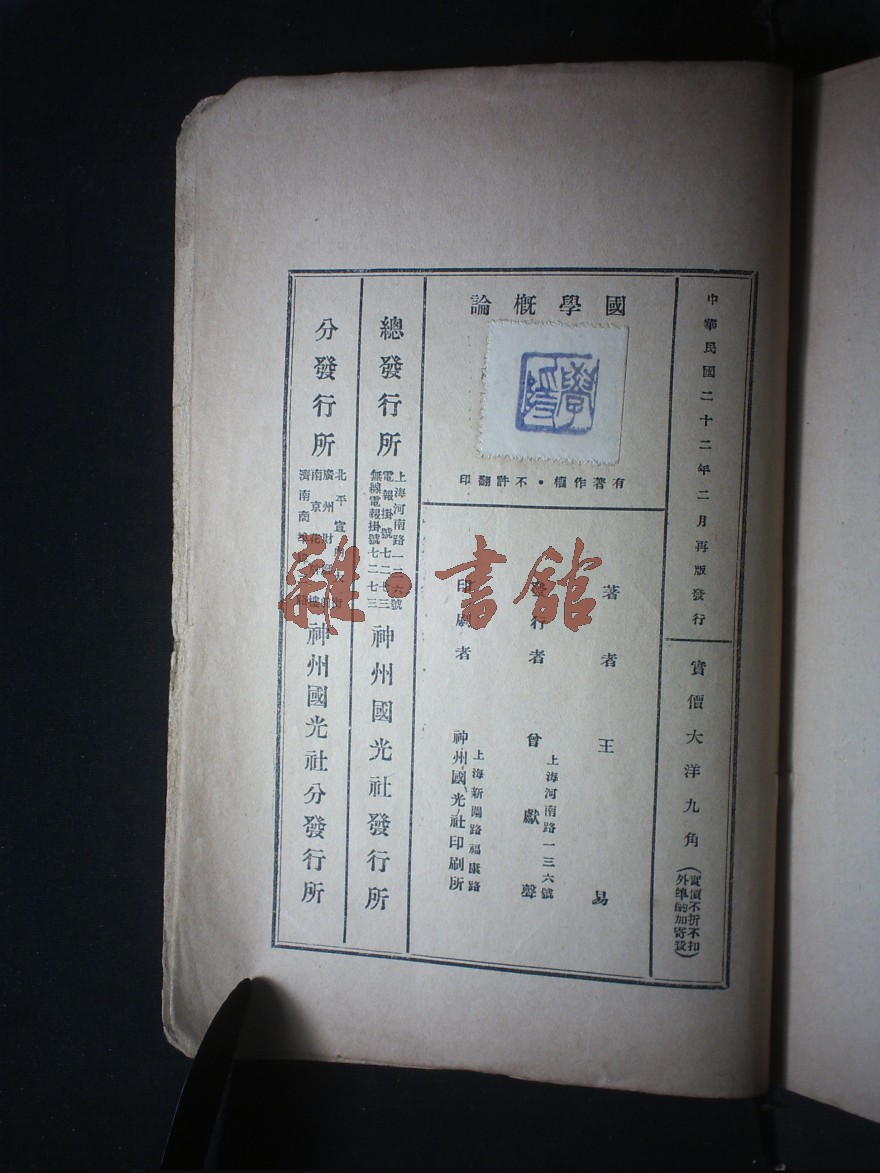 中華民國二十二年二月再版發行
實價大洋九角
(實價不折不扣
外埠酌加寄費)
國學概論
有著作權・不許翻印
著者 王易
發行者 曾獻聲
上海河南路一三六號
印刷者
上海新閘路福康路
神州國光社印刷所
總發行所
上海河南路一三六號
電報掛號七二七三
無線電報掛號七二七三
神州國光社發行所
分發行所
北平宣
廣州財
南京花
濟南商埠
神州國光社分發行所
雜・書館